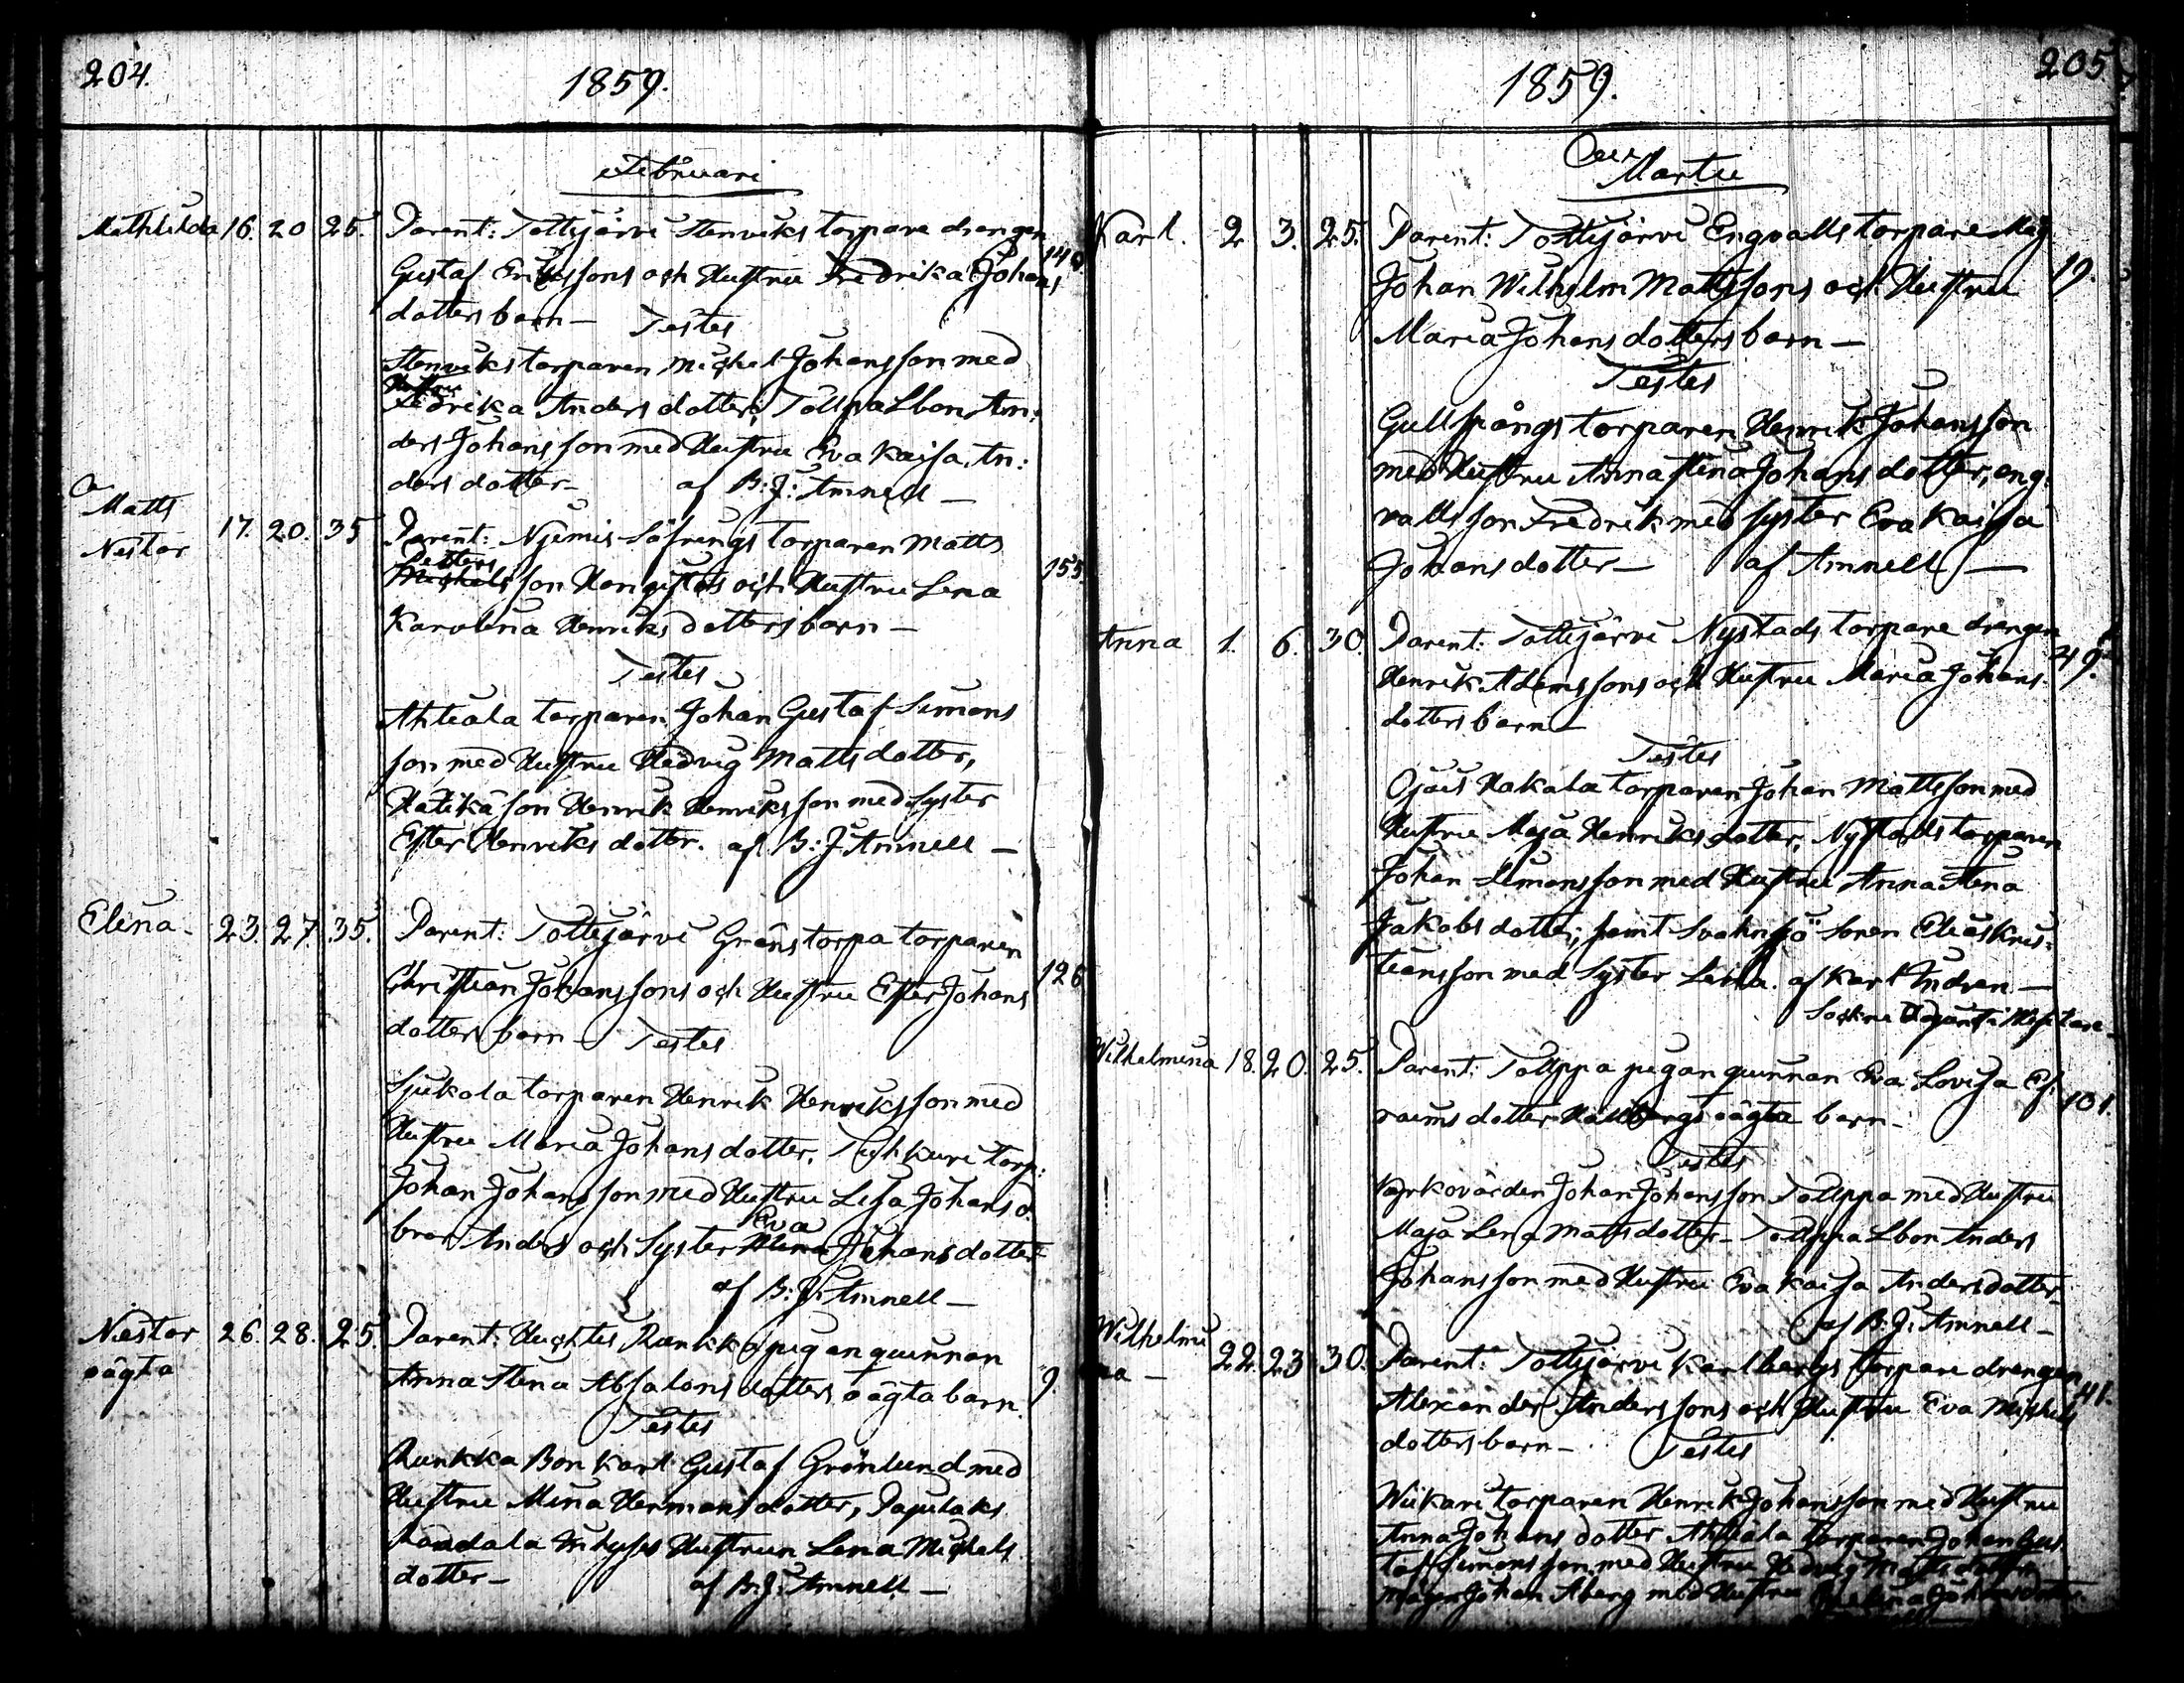 204.
1859.
Februari
Mathilda 16. 20 25. Parent: Tottijärvi Stenviks torpare drengen
Gustaf Erikssons och Hustru Fredrika Johans 140.
dotters barn – Testes
Stenviks torparen Michel Johansson med
Hustru
Fedrika Anders dotter, Tolppa Lbon An:
ders Johansson med Hustru Eva Kaisa An:
ders dotter – af B: J: Amnell –
Matts
Nestor 17. 20. 35 Parent: Njemis Säfrings torparen Matts
Petters 155.
Michels son Hongistos och Hustru Lena
Karolina Henriks dotters barn –
Testes
Ahteala torparen Johan Gustaf Simons
son med Hustru Hedvig Matts dotter,
Hatikä son Henrik Henriksson med Syster
Ester Henriks dotter. af B: J Amnell –
Elina – 23. 27. 35. Parent: Tottijärvi Gränstorpa torparen
Christian Johanssons och Hustru Ester Johans 126
dotters barn – Testes
Sjukola torparen Henrik Henriksson med
Hustru Maria Johans dotter, torp:
Johan Johansson med Hustru Lisa Johans d.
Eva
bror Anders och Syster Johans dotter
af B: J: Amnell –
Nestor 26. 28. 25. Parent: Huchtis Runkka pigan quinnan
oägta Anna Stina Absalons dotters oägta barn. 9.
Testes
Runkka Bon Karl Gustaf Grönlund med
Hustru Mina Hermans dotter, Papulaks
Hustrun Lena Michels
dotter – af B: J: Amnell –
205.
1859.
Martii
Karl. 2. 3. 25. Parent: Tottijärvi Engvalls torpare Måg
Johan Wilhelm Mattssons och Hustru 19.
Maria Johans dotters barn –
Testes
Gullspångs torparen Henrik Johansson
med Hustru Anna Stina Johans dotter, eng
valls son Fredrik med Syster Eva Kaisa
Johans dotter – af Amnell –
Anna 1. 6. 30. Parent: Tottijärvi Nystads torpare drengen
Henrik Adamssons och Hustru Maria Johans 49.
dotters barn –
Testes
Ojais Hakala torparen Johan Mattsson med
Hustru Maja Henriks dotter, Nystads torparen
Johan Simonsson med Hustru Anna Stina
Jakobs dotter, samt Svahnsjö Sonen Elias Kris:
tiansson med Syster Leena. af Karl Indren –
Sockne Adjunkt i
Wilhelmina 18. 20. 25. Parent: Tolppa pigan quinnan Eva Lovisa Ef
raims dotter Hallbergs oägta barn – 101.
Testes
Kyrkovärden Johan Johansson Tolppa med Hustru
Maja Lena Matts dotter – Tolppa Lbon Anders
Johansson med Hustru Eva Kaisa Anders dotter
af B: J: Amnell –
Wilhelmi
na – 22. 23 30. Parent: Tottijärvi Karlbergs torpare drengen
Alexander Anderssons och Hustru Eva Michels 41.
dotters barn – Testes
Wiikari torparen Henrik Johansson med Hustru
Anna Johans dotter Ahteala torparen Johan Gus
taf Simonsson med Hustru Hedvig Matts dotter
mågen Johan Åberg med Hustru Johans dotter